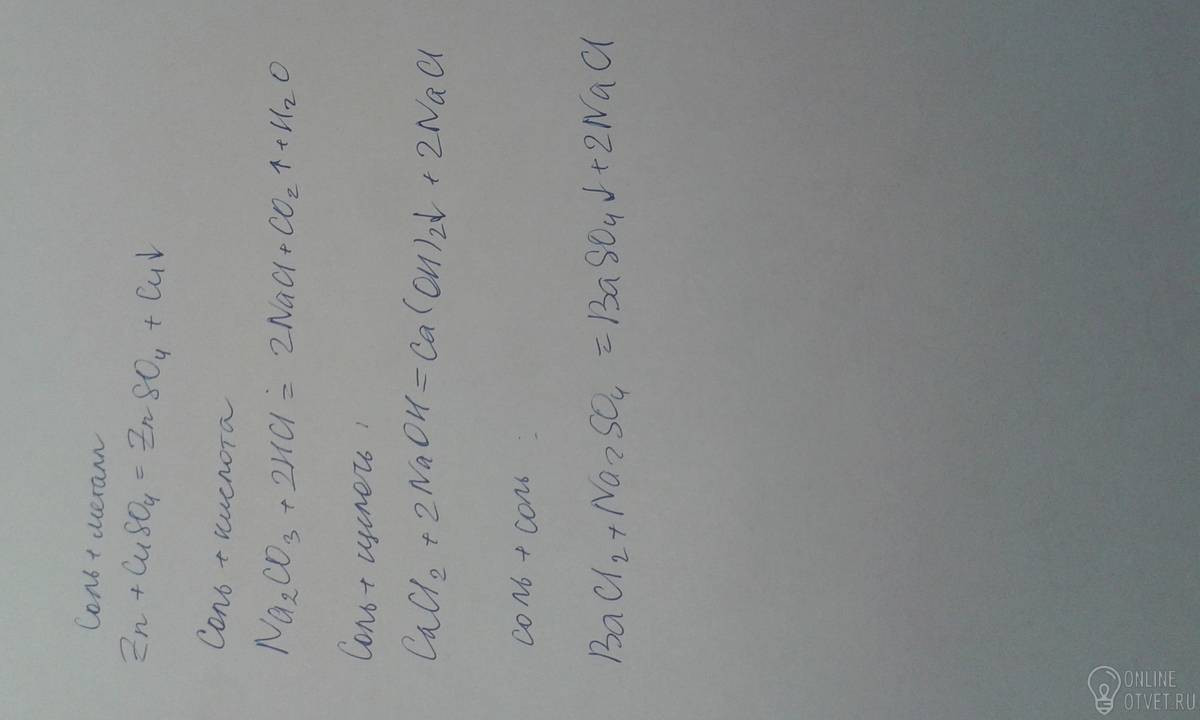 Соль + металл
Zn + CuSO₄ = ZnSO₄ + Cu↓
Соль + кислота
Na₂CO₃ + 2HCl = 2NaCl + CO₂↑ + H₂O
Соль + щелочь:
CaCl₂ + 2NaOH = Ca(OH)₂↓ + 2NaCl
соль + соль:
BaCl₂ + Na₂SO₄ = BaSO₄↓ + 2NaCl
ONLINE
OTVET.RU